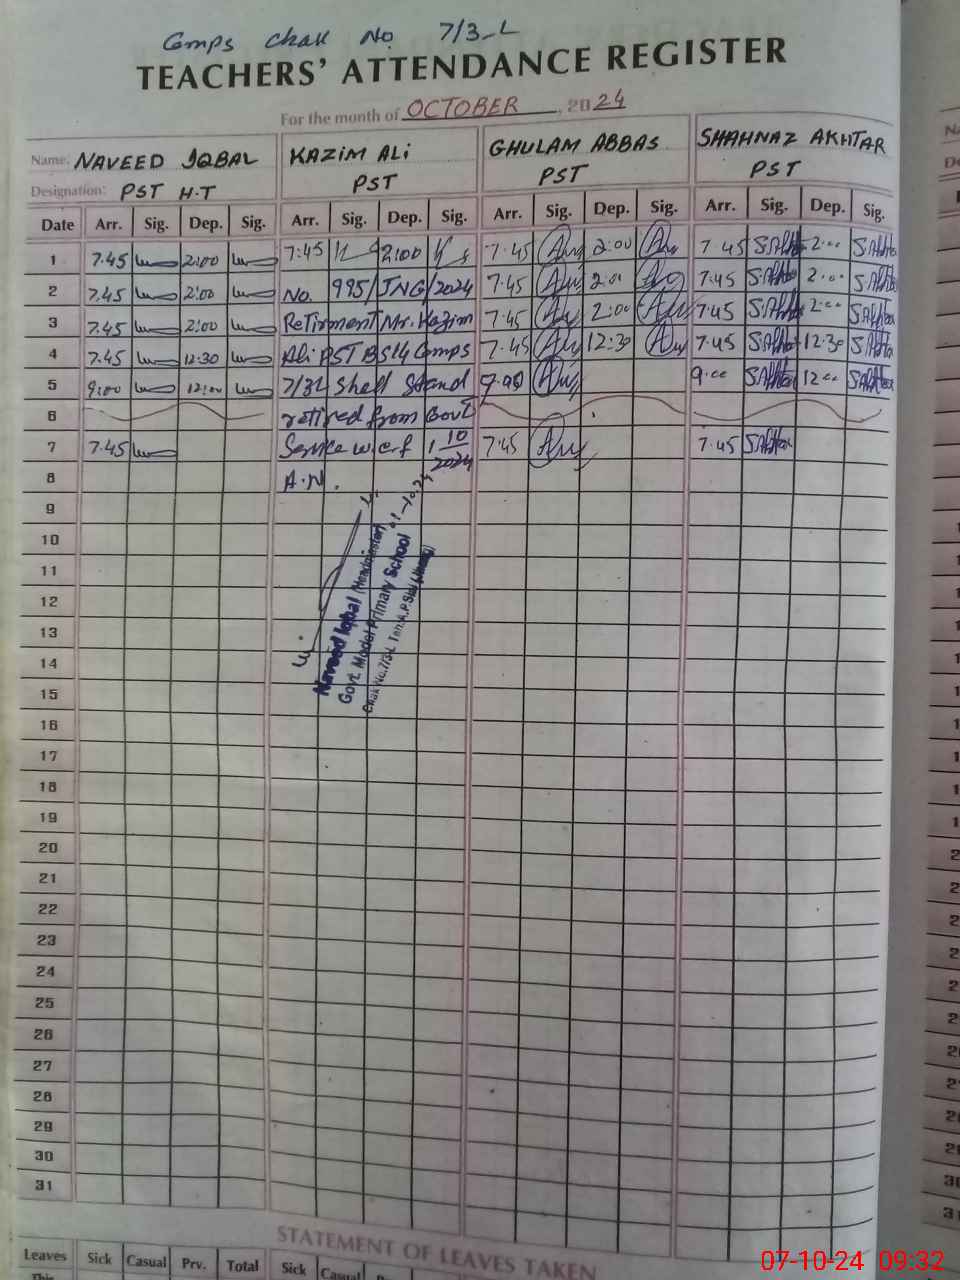 Gmps Chak No. 7/3-L
TEACHERS' ATTENDANCE REGISTER
For the month of OCTOBER, 2024
Name: NAVEED IQBAL KAZIM ALI GHULAM ABBAS SHAHNAZ AKHTAR
Designation: PST H.T PST PST PST
Date Arr. Sig. Dep. Sig. Arr. Sig. Dep. Sig. Arr. Sig. Dep. Sig. Arr. Sig. Dep. Sig.
1 7.45 2:00 7:45 2:00 7.45 2:00 7.45 2.00
2 7.45 2:00 No. 995/JNG/2024 7.45 2:00 7.45 2.00
3 7.45 2:00 Retirment Mr. Kazim 7.45 2:00 7.45 2.00
4 7.45 12:30 Ali PST BS14 Gmps 7.45 12:30 7.45 12.30
5 9:00 12:00 7/3L shall stand 9.00 9.00 12.00
6 retired from Govt
7 7.45 Service w.e.f 1 10/2024 7:45 7.45
8 A.N.
9
10
11
12
13
14
15
16
17
18
19
20
21
22
23
24
25
26
27
28
29
30
31
Naveed Iqbal (Headmaster)
Govt. Model Primary School
Chak No.7/3-L
STATEMENT OF LEAVES TAKEN
Leaves Sick Casual Prv. Total Sick Casual
This
07-10-24 09:32